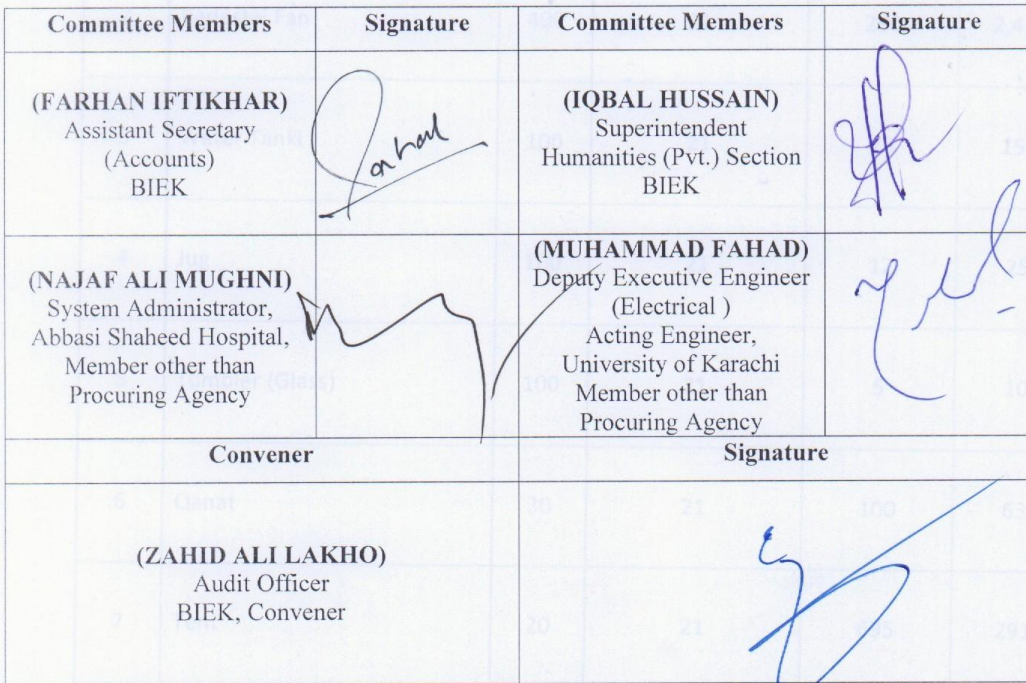 Committee Members Signature Committee Members Signature
(FARHAN IFTIKHAR)
Assistant Secretary
(Accounts)
BIEK
Farhad
(IQBAL HUSSAIN)
Superintendent
Humanities (Pvt.) Section
BIEK
(NAJAF ALI MUGHNI)
System Administrator,
Abbasi Shaheed Hospital,
Member other than
Procuring Agency
(MUHAMMAD FAHAD)
Deputy Executive Engineer
(Electrical )
Acting Engineer,
University of Karachi
Member other than
Procuring Agency
Convener Signature
(ZAHID ALI LAKHO)
Audit Officer
BIEK, Convener
Jug
Tumbler (Glass) 100 21
6 Qanat 30 21 100
7 Tent 20 21